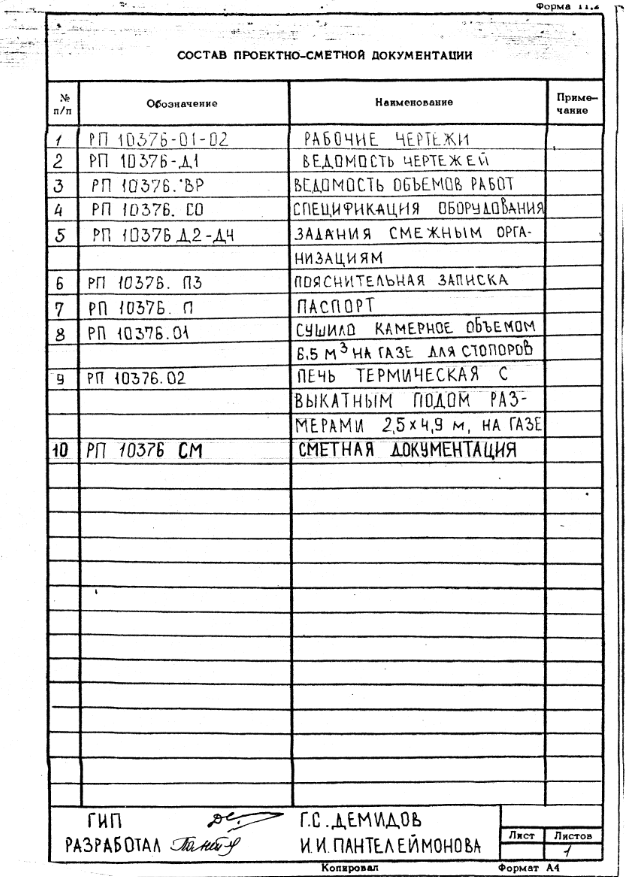 Форма 11.2
СОСТАВ ПРОЕКТНО-СМЕТНОЙ ДОКУМЕНТАЦИИ
№ п/п Обозначение Наименование Приме-чание
1 РП 10376-01-02 РАБОЧИЕ ЧЕРТЕЖИ
2 РП 10376-Д1 ВЕДОМОСТЬ ЧЕРТЕЖЕЙ
3 РП 10376.ВР ВЕДОМОСТЬ ОБЪЕМОВ РАБОТ
4 РП 10376. СО СПЕЦИФИКАЦИЯ ОБОРУДОВАНИЯ
5 РП 10376 Д2-Д4 ЗАДАНИЯ СМЕЖНЫМ ОРГА-
НИЗАЦИЯМ
6 РП 10376. ПЗ ПОЯСНИТЕЛЬНАЯ ЗАПИСКА
7 РП 10376. П ПАСПОРТ
8 РП 10376.01 СУШИЛО КАМЕРНОЕ ОБЪЕМОМ
6.5 М³ НА ГАЗЕ ДЛЯ СТОПОРОВ
9 РП 10376.02 ПЕЧЬ ТЕРМИЧЕСКАЯ С
ВЫКАТНЫМ ПОДОМ РАЗ-
МЕРАМИ 2,5×4,9 м, НА ГАЗЕ
10 РП 10376 СМ СМЕТНАЯ ДОКУМЕНТАЦИЯ
ГИП Г.С. ДЕМИДОВ
РАЗРАБОТАЛ И.И. ПАНТЕЛЕЙМОНОВА
Лист Листов
1
Копировал Формат А4